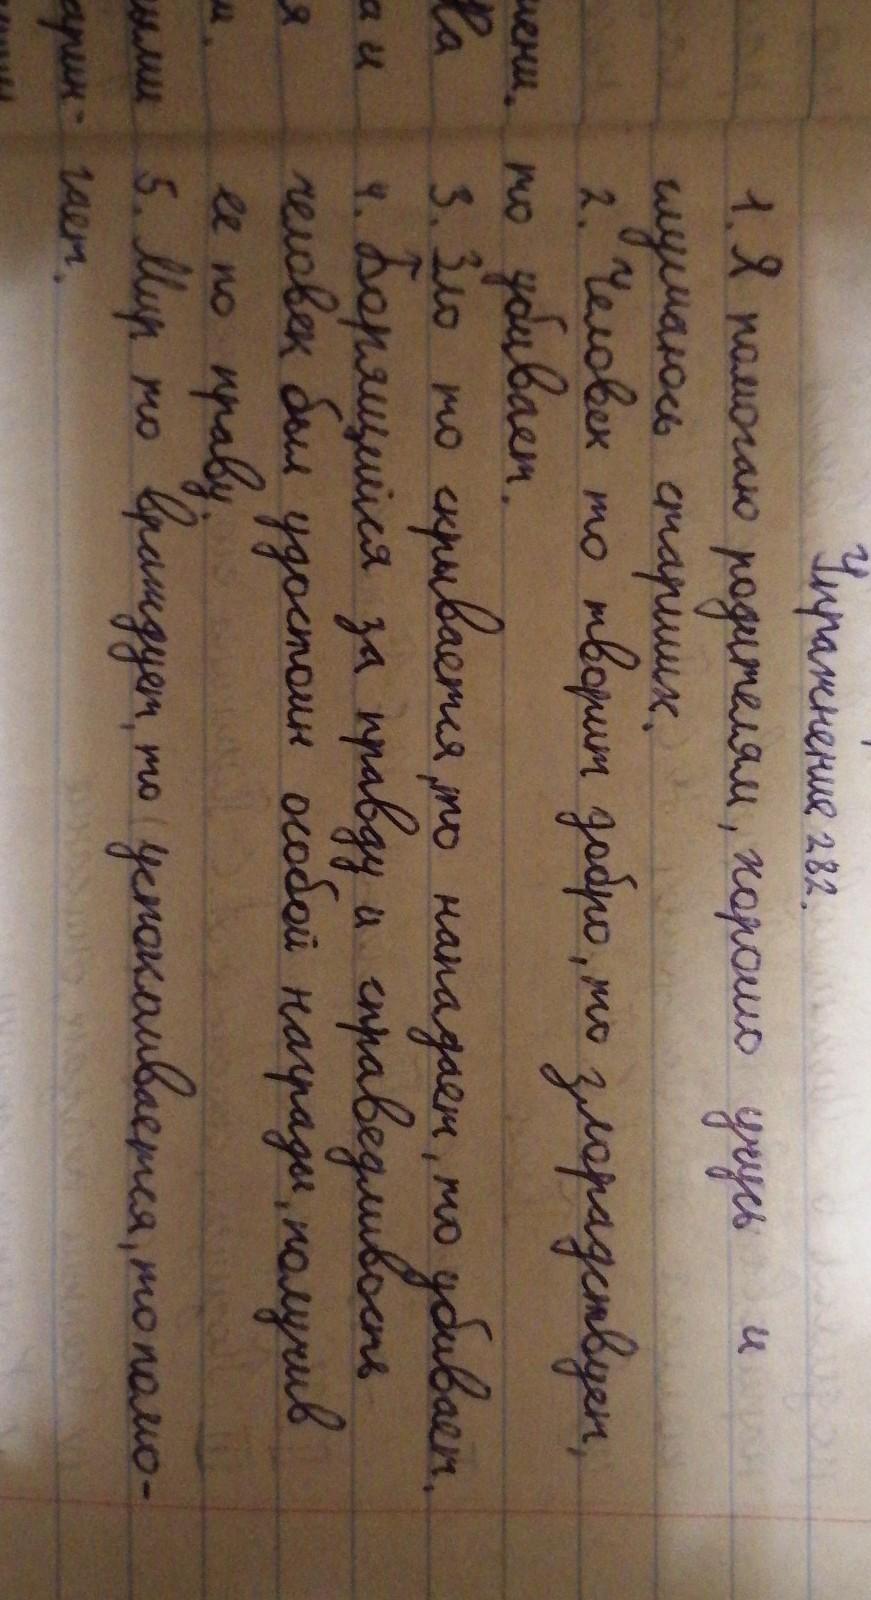 Упражнение 282.
1. Я помогаю родителям, хорошо учусь и
слушаюсь старших.
2. Человек то творит добро, то злорадствует,
то убивает.
3. Зло то скрывается, то нападает, то убивает.
4. Борящийся за правду и справедливость
человек был удостоин особой награды, получив
ее по праву.
5. Мир то враждует, то успокаивается, то помо-
гает.